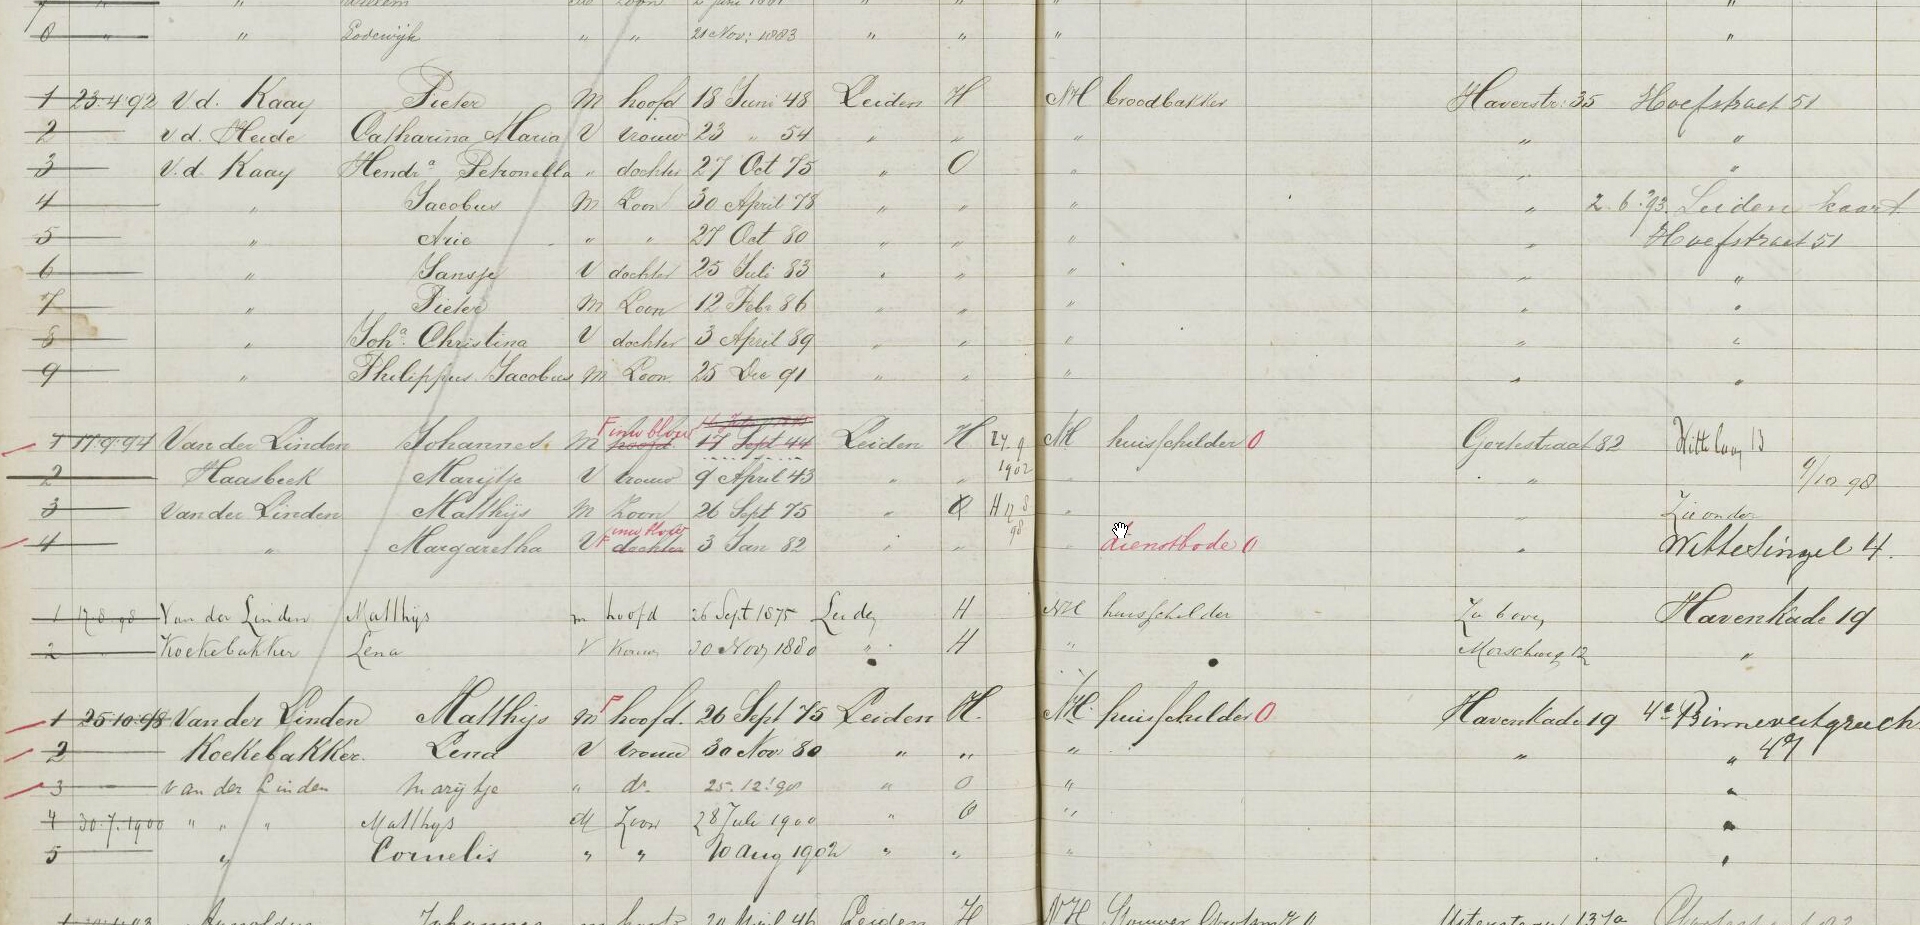 " " Willem " Zoon 2 Juni 1881 " " "
8 " " Lodewijk " " 21 Nov: 1883 " " " "
1 23.4.92 v.d. Kaay Pieter M hoofd 18 Juni 48 Leiden H NH broodbakker Haverstr: 35 Hoefstraat 51
2 v.d. Heide Catharina Maria V vrouw 23 " 54 " " " " "
3 v.d. Kaay Hendra Petronella " dochter 27 Oct 75 " O " " "
4 " Jacobus M Zoon 30 April 78 " " " " 2.6.93 Leiden kaart
5 " Arie " " 27 Oct 80 " " " " Hoefstraat 51
6 " Jansje V dochter 25 Juli 83 " " " " "
7 " Pieter M Zoon 12 Febr 86 " " " " "
8 " Joha Christina V dochter 3 April 89 " " " " "
9 " Philippus Jacobus M Zoon 25 Dec 91 " " " " "
1 17.9.94 Van der Linden Johannes M F inw blow hoofd 17 Sept 44 Leiden H 27.9 1902 NH huisschilder O Gortestraat 82 Witte laan 13
2 Haasbeek Marijtje V vrouw 9 April 43 " " " " 9/10 98
3 Van der Linden Matthijs M Zoon 26 Sept 75 " O H 17 8 98 " " Zie onder
4 " Margaretha V F inw blow dochter 3 Jan 82 " " " dienstbode O " Witte Singel 4.
1 17.8.98 Van der Linden Matthijs m hoofd 26 Sept 1875 Leiden H NH huisschilder Zie boven Havenkade 19
2 Koekebakker Lena V Vrouw 30 Nov 1880 " H " Morschweg 12 "
1 25.10.98 Van der Linden Matthijs m F hoofd. 26 Sept 75 Leiden H. NH. huisschilder O Havenkade 19 4e Binnevestgracht
2 Koekebakker. Lena V vrouw 30 Nov 80 " " " " " 49
3 van der Linden Marijtje " dr. 25.12.'98 " O " "
4 30.7.1900 " " " Matthijs M Zoon 28 Juli 1900 " O " "
5 " Cornelis " " 10 Aug 1902 " " " "
1 Arnoldus Johannes m hoofd 20 April 46 Leiden H NH O Uiterstegr 137a